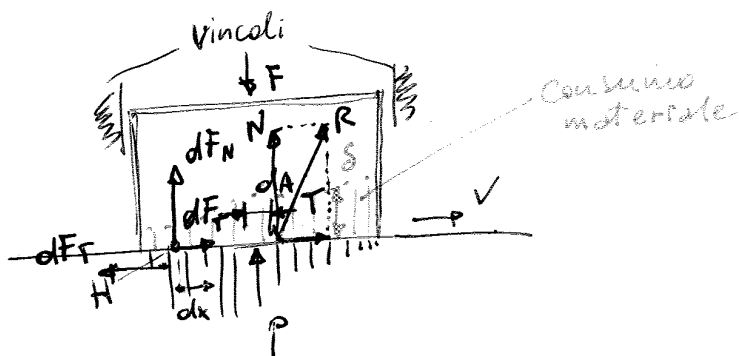 Vincoli
F
Consumo
materiale
N
R
dF_N
δ
dA
T
dF_T
V
dF_T
H
dx
P